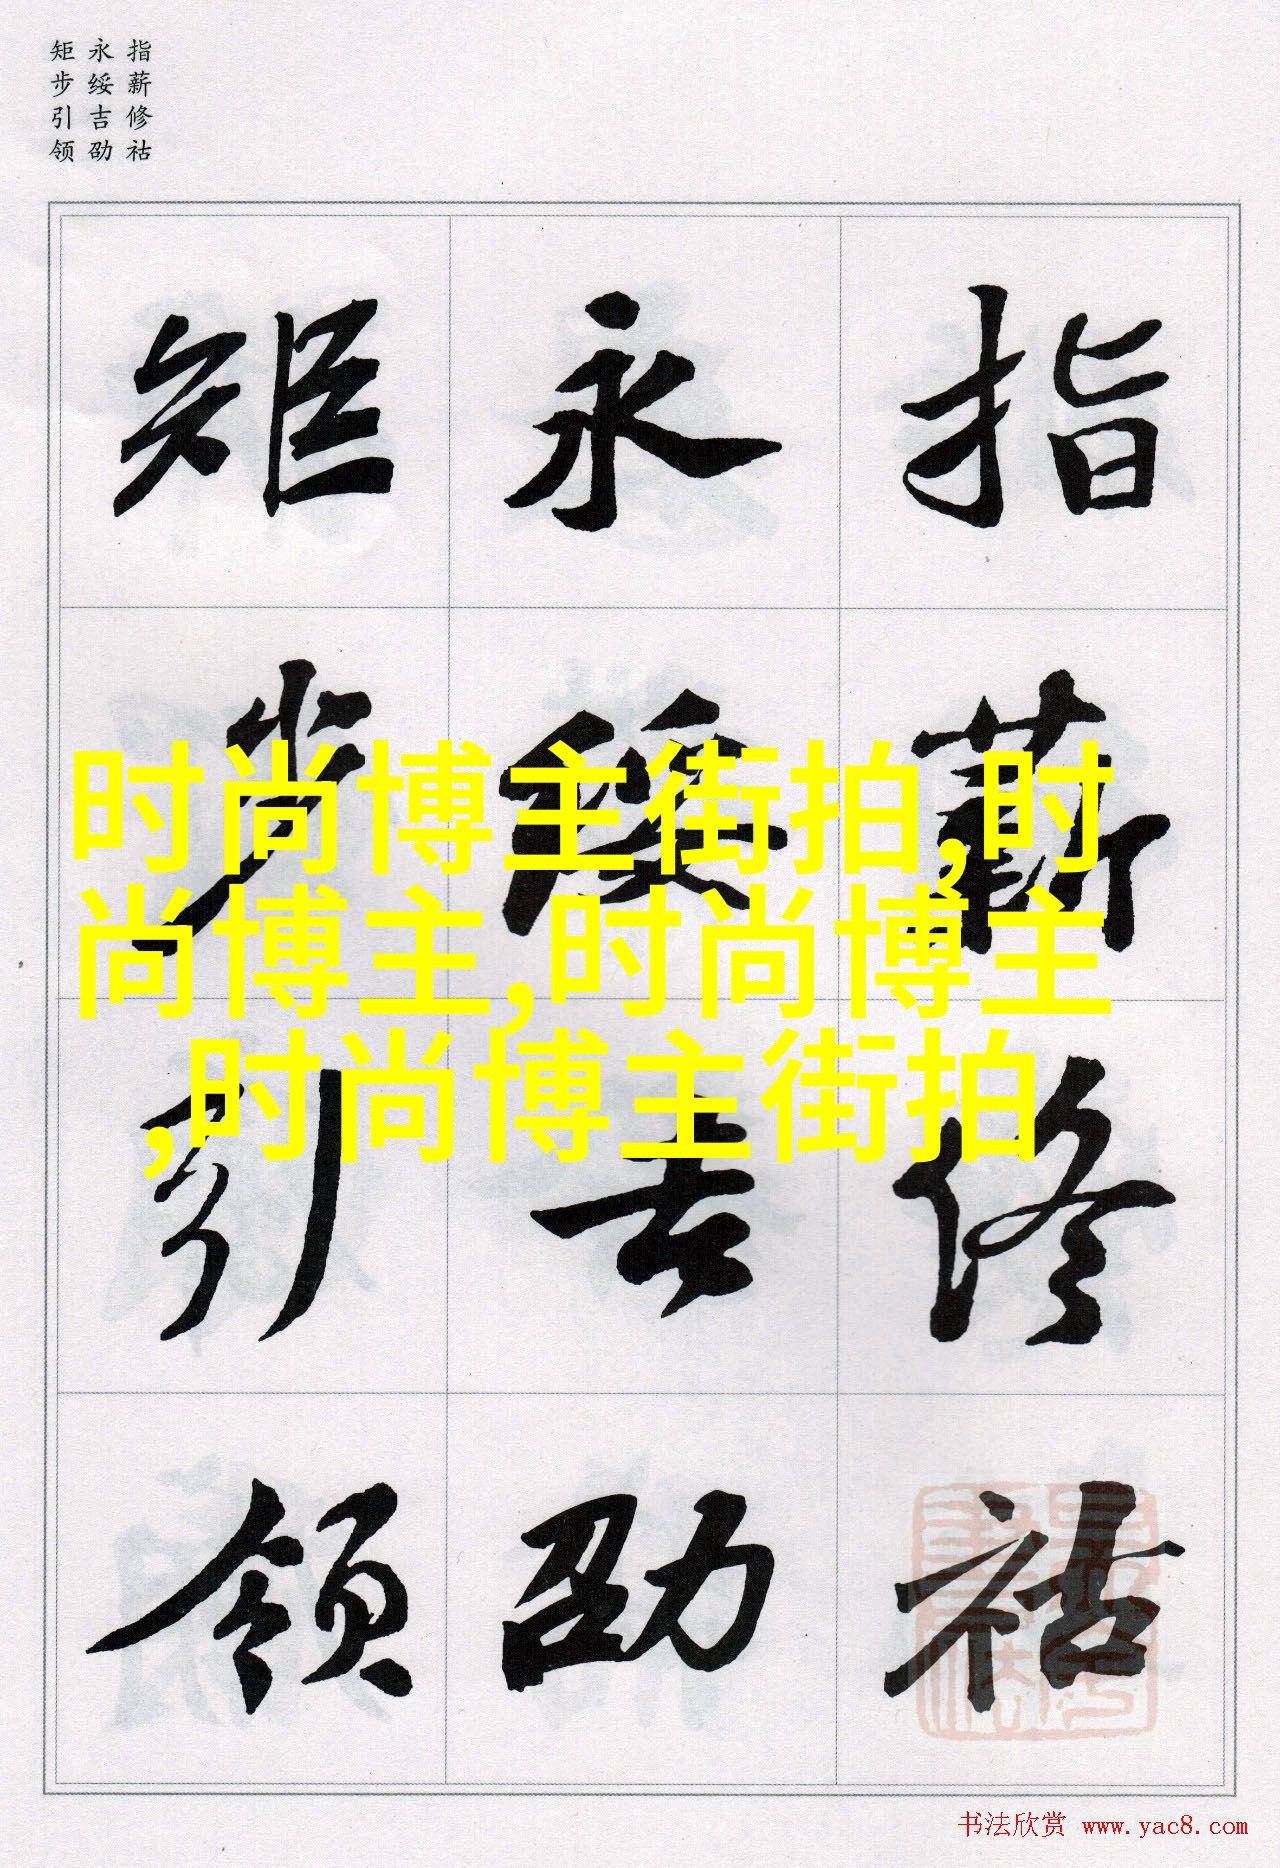 指薪修祜
永绥吉劭
矩步引领
指薪修祜
永绥吉劭
矩步引领
时尚博主街拍,时
尚博主,时尚博主
,时尚博主街拍
书法欣赏 www.yac8.com